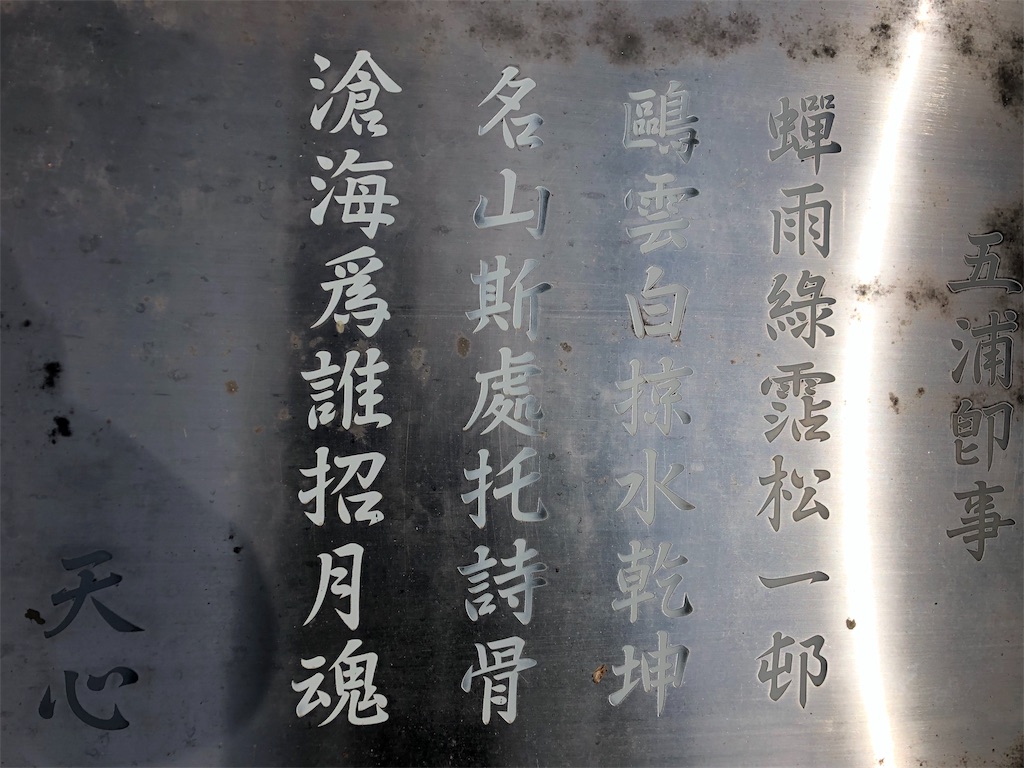 五浦即事
蟬雨綠霑松一邨
鷗雲白掠水乾坤
名山斯處托詩骨
滄海爲誰招月魂
天心